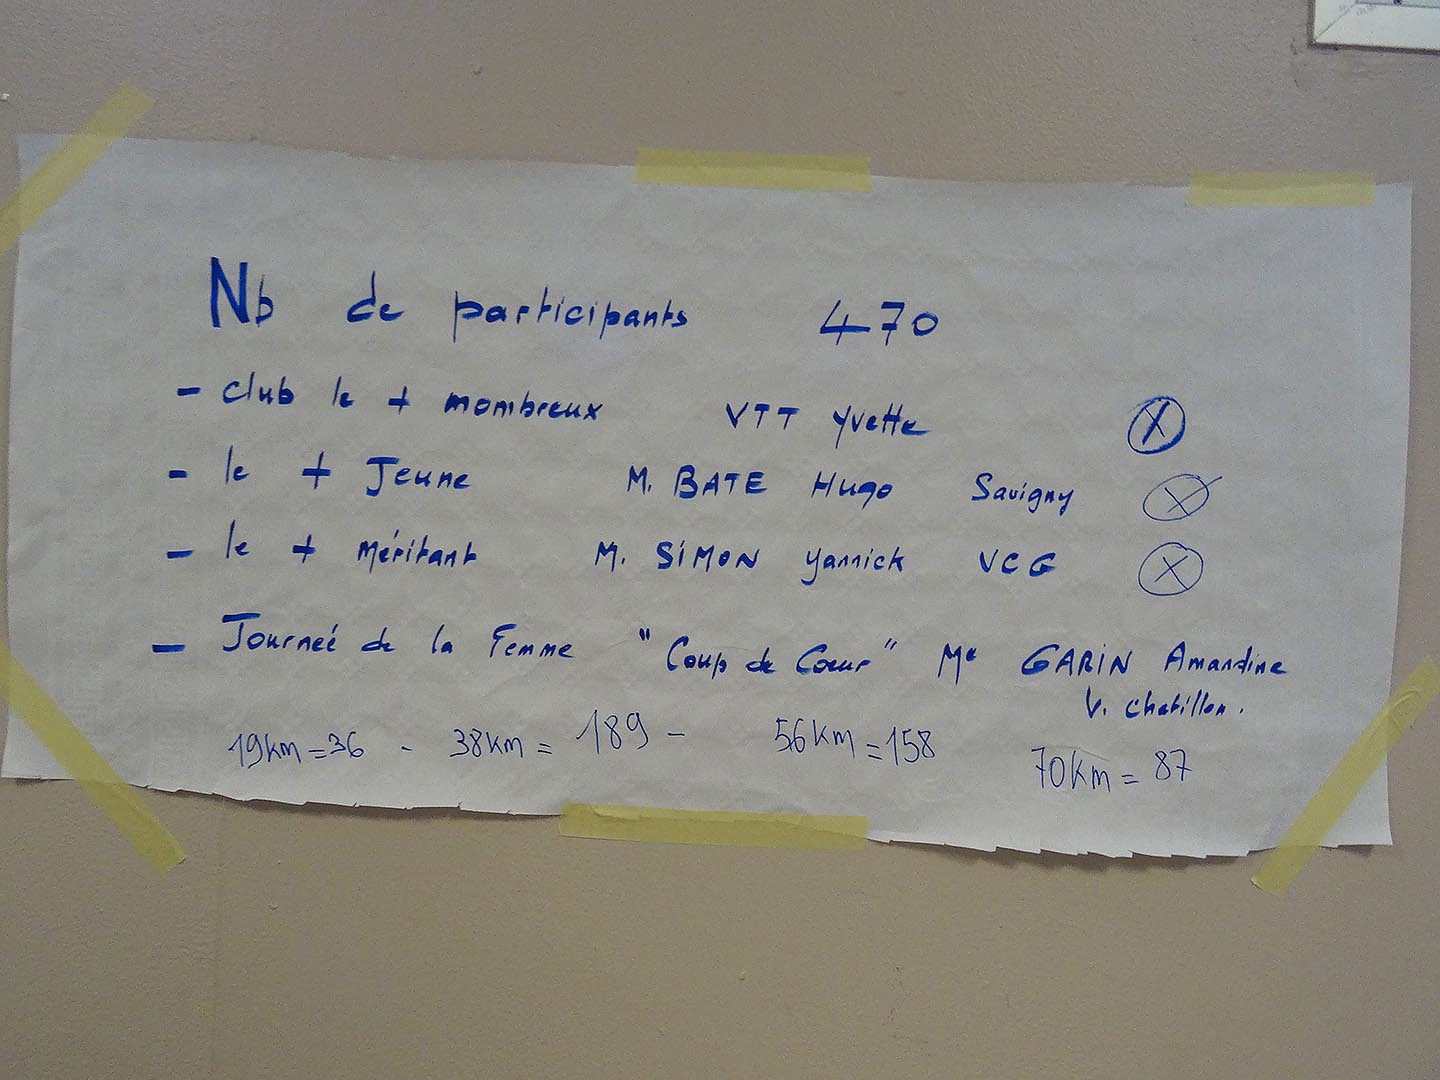 Nb de participants 470
- club le + nombreux VTT Yvette
- le + Jeune M. BATE Hugo Savigny
- le + méritant M. SIMON Yannick VCG
- Journeé de la Femme "Coup de Cœur" Me GARIN Amandine
V. Chatillon.
19km = 36 - 38km = 189 - 56km = 158 70km = 87